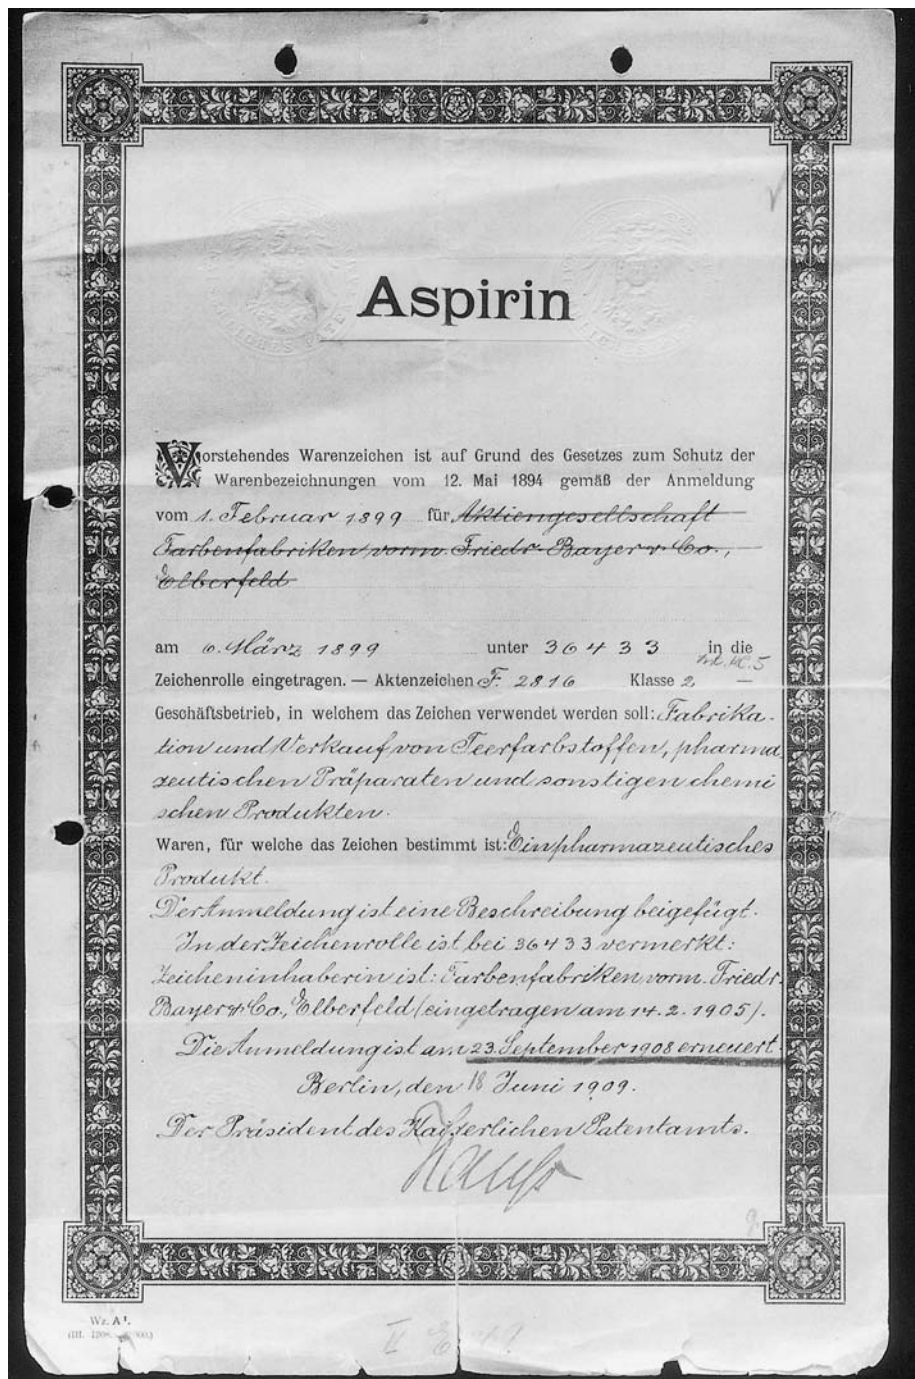 Aspirin
Vorstehendes Warenzeichen ist auf Grund des Gesetzes zum Schutz der
Warenbezeichnungen vom 12. Mai 1894 gemäß der Anmeldung
vom 1. Februar 1899 für Aktiengesellschaft
Farbenfabriken vorm. Friedr. Bayer & Co.,
Elberfeld
am 6. März 1899 unter 36433 in die
Zeichenrolle eingetragen. — Aktenzeichen F. 2816 Klasse 2
Geschäftsbetrieb, in welchem das Zeichen verwendet werden soll: Fabrika-
tion und Verkauf von Teerfarbstoffen, pharma
zeutischen Präparaten und sonstigen chemi
schen Produkten.
Waren, für welche das Zeichen bestimmt ist: Ein pharmazeutisches
Produkt.
Der Anmeldung ist eine Beschreibung beigefügt.
In der Zeichenrolle ist bei 36433 vermerkt:
Zeicheninhaberin ist: Farbenfabriken vorm. Friedr.
Bayer & Co., Elberfeld (eingetragen am 14. 2. 1905).
Die Anmeldung ist am 23. September 1908 erneuert.
Berlin, den 18 Juni 1909.
Der Präsident des Kaiserlichen Patentamts.
Hauß
Wz. A¹.